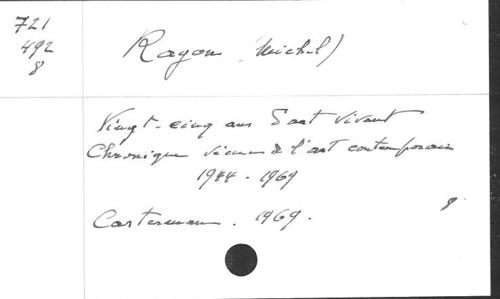 721
492
8
Ragon (Michel)
Vingt-cinq ans d'art vivant
Chronique vécue de l'art contemporain
1944-1969
Casterman. 1969.
8°